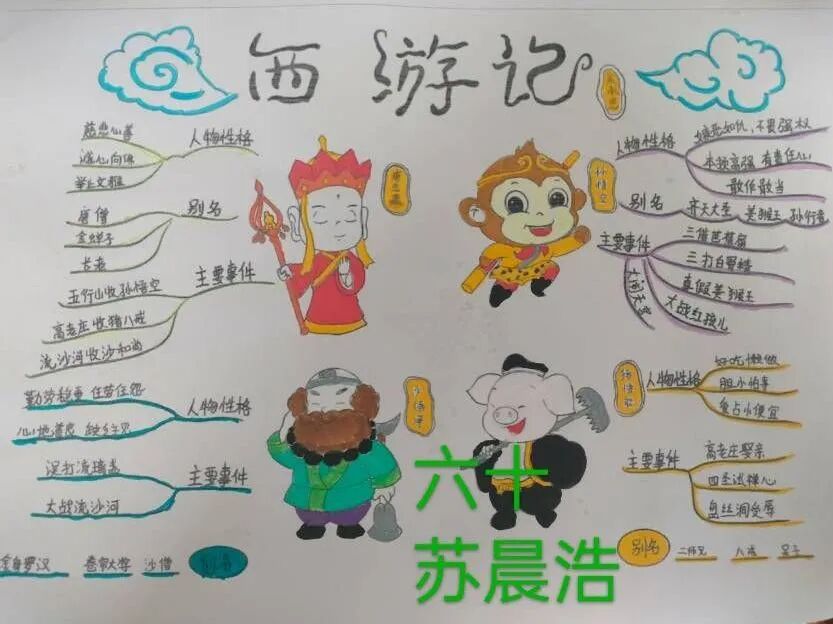 西游记
人物性格
慈悲心善
举止文雅
别名
唐僧
金蝉子
长老
主要事件
五行山收孙悟空
高老庄收猪八戒
流沙河收沙和尚
孙悟空
人物性格
嫉恶如仇，不畏强权
本领高强 有责任心
敢作敢当
别名
齐天大圣 美猴王 孙行者
主要事件
三借芭蕉扇
三打白骨精
真假美猴王
大战红孩儿
大闹天宫
人物性格
勤劳稳重 任劳任怨
心地善良
主要事件
误打琉璃盏
大战流沙河
别名
金身罗汉 卷帘大将 沙僧
人物性格
好吃懒做
胆小怕事
贪占小便宜
主要事件
高老庄娶亲
四圣试禅心
盘丝洞受辱
别名
二师兄 八戒 呆子
六十
苏晨浩